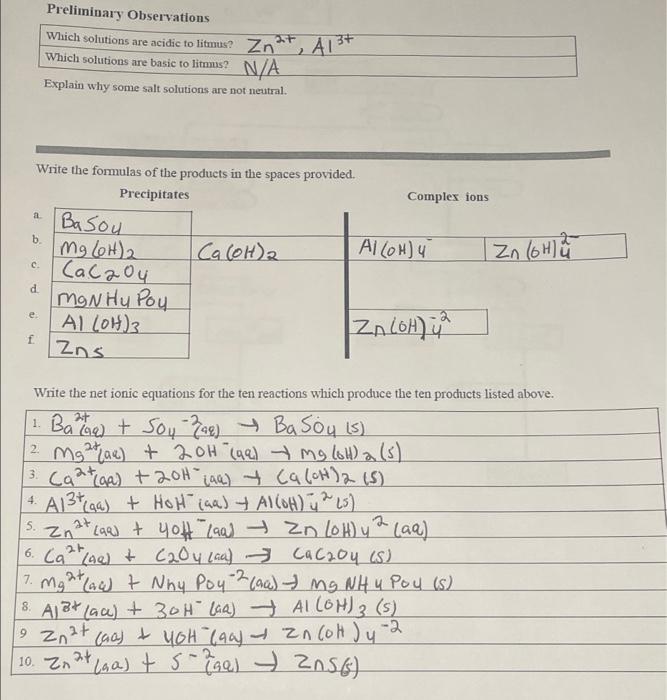 Preliminary Observations
Which solutions are acidic to litmus? Zn²⁺, Al³⁺
Which solutions are basic to litmus? N/A
Explain why some salt solutions are not neutral.
Write the formulas of the products in the spaces provided.
Precipitates Complex ions
a. BaSO4
b. Mg(OH)2 Ca(OH)2 Al(OH)4⁻ Zn(OH)4²⁻
c. CaC2O4
d. MgNH4PO4
e. Al(OH)3 Zn(OH)4⁻²
f. ZnS
Write the net ionic equations for the ten reactions which produce the ten products listed above.
1. Ba²⁺(aq) + SO4⁻²(aq) → BaSO4 (s)
2. Mg²⁺(aq) + 2OH⁻(aq) → Mg(OH)2(s)
3. Ca²⁺(aq) + 2OH⁻(aq) → Ca(OH)2 (s)
4. Al³⁺(aq) + HOH⁻(aq) → Al(OH)4⁻² (s)
5. Zn²⁺(aq) + 4OH⁻(aq) → Zn(OH)4⁻² (aq)
6. Ca²⁺(aq) + C2O4(aq) → CaC2O4 (s)
7. Mg²⁺(aq) + NH4 PO4⁻²(aq) → MgNH4PO4 (s)
8. Al³⁺(aq) + 3OH⁻(aq) → Al(OH)3 (s)
9 Zn²⁺(aq) + 4OH⁻(aq) → Zn(OH)4⁻²
10. Zn²⁺(aq) + S⁻²(aq) → ZnS(s)